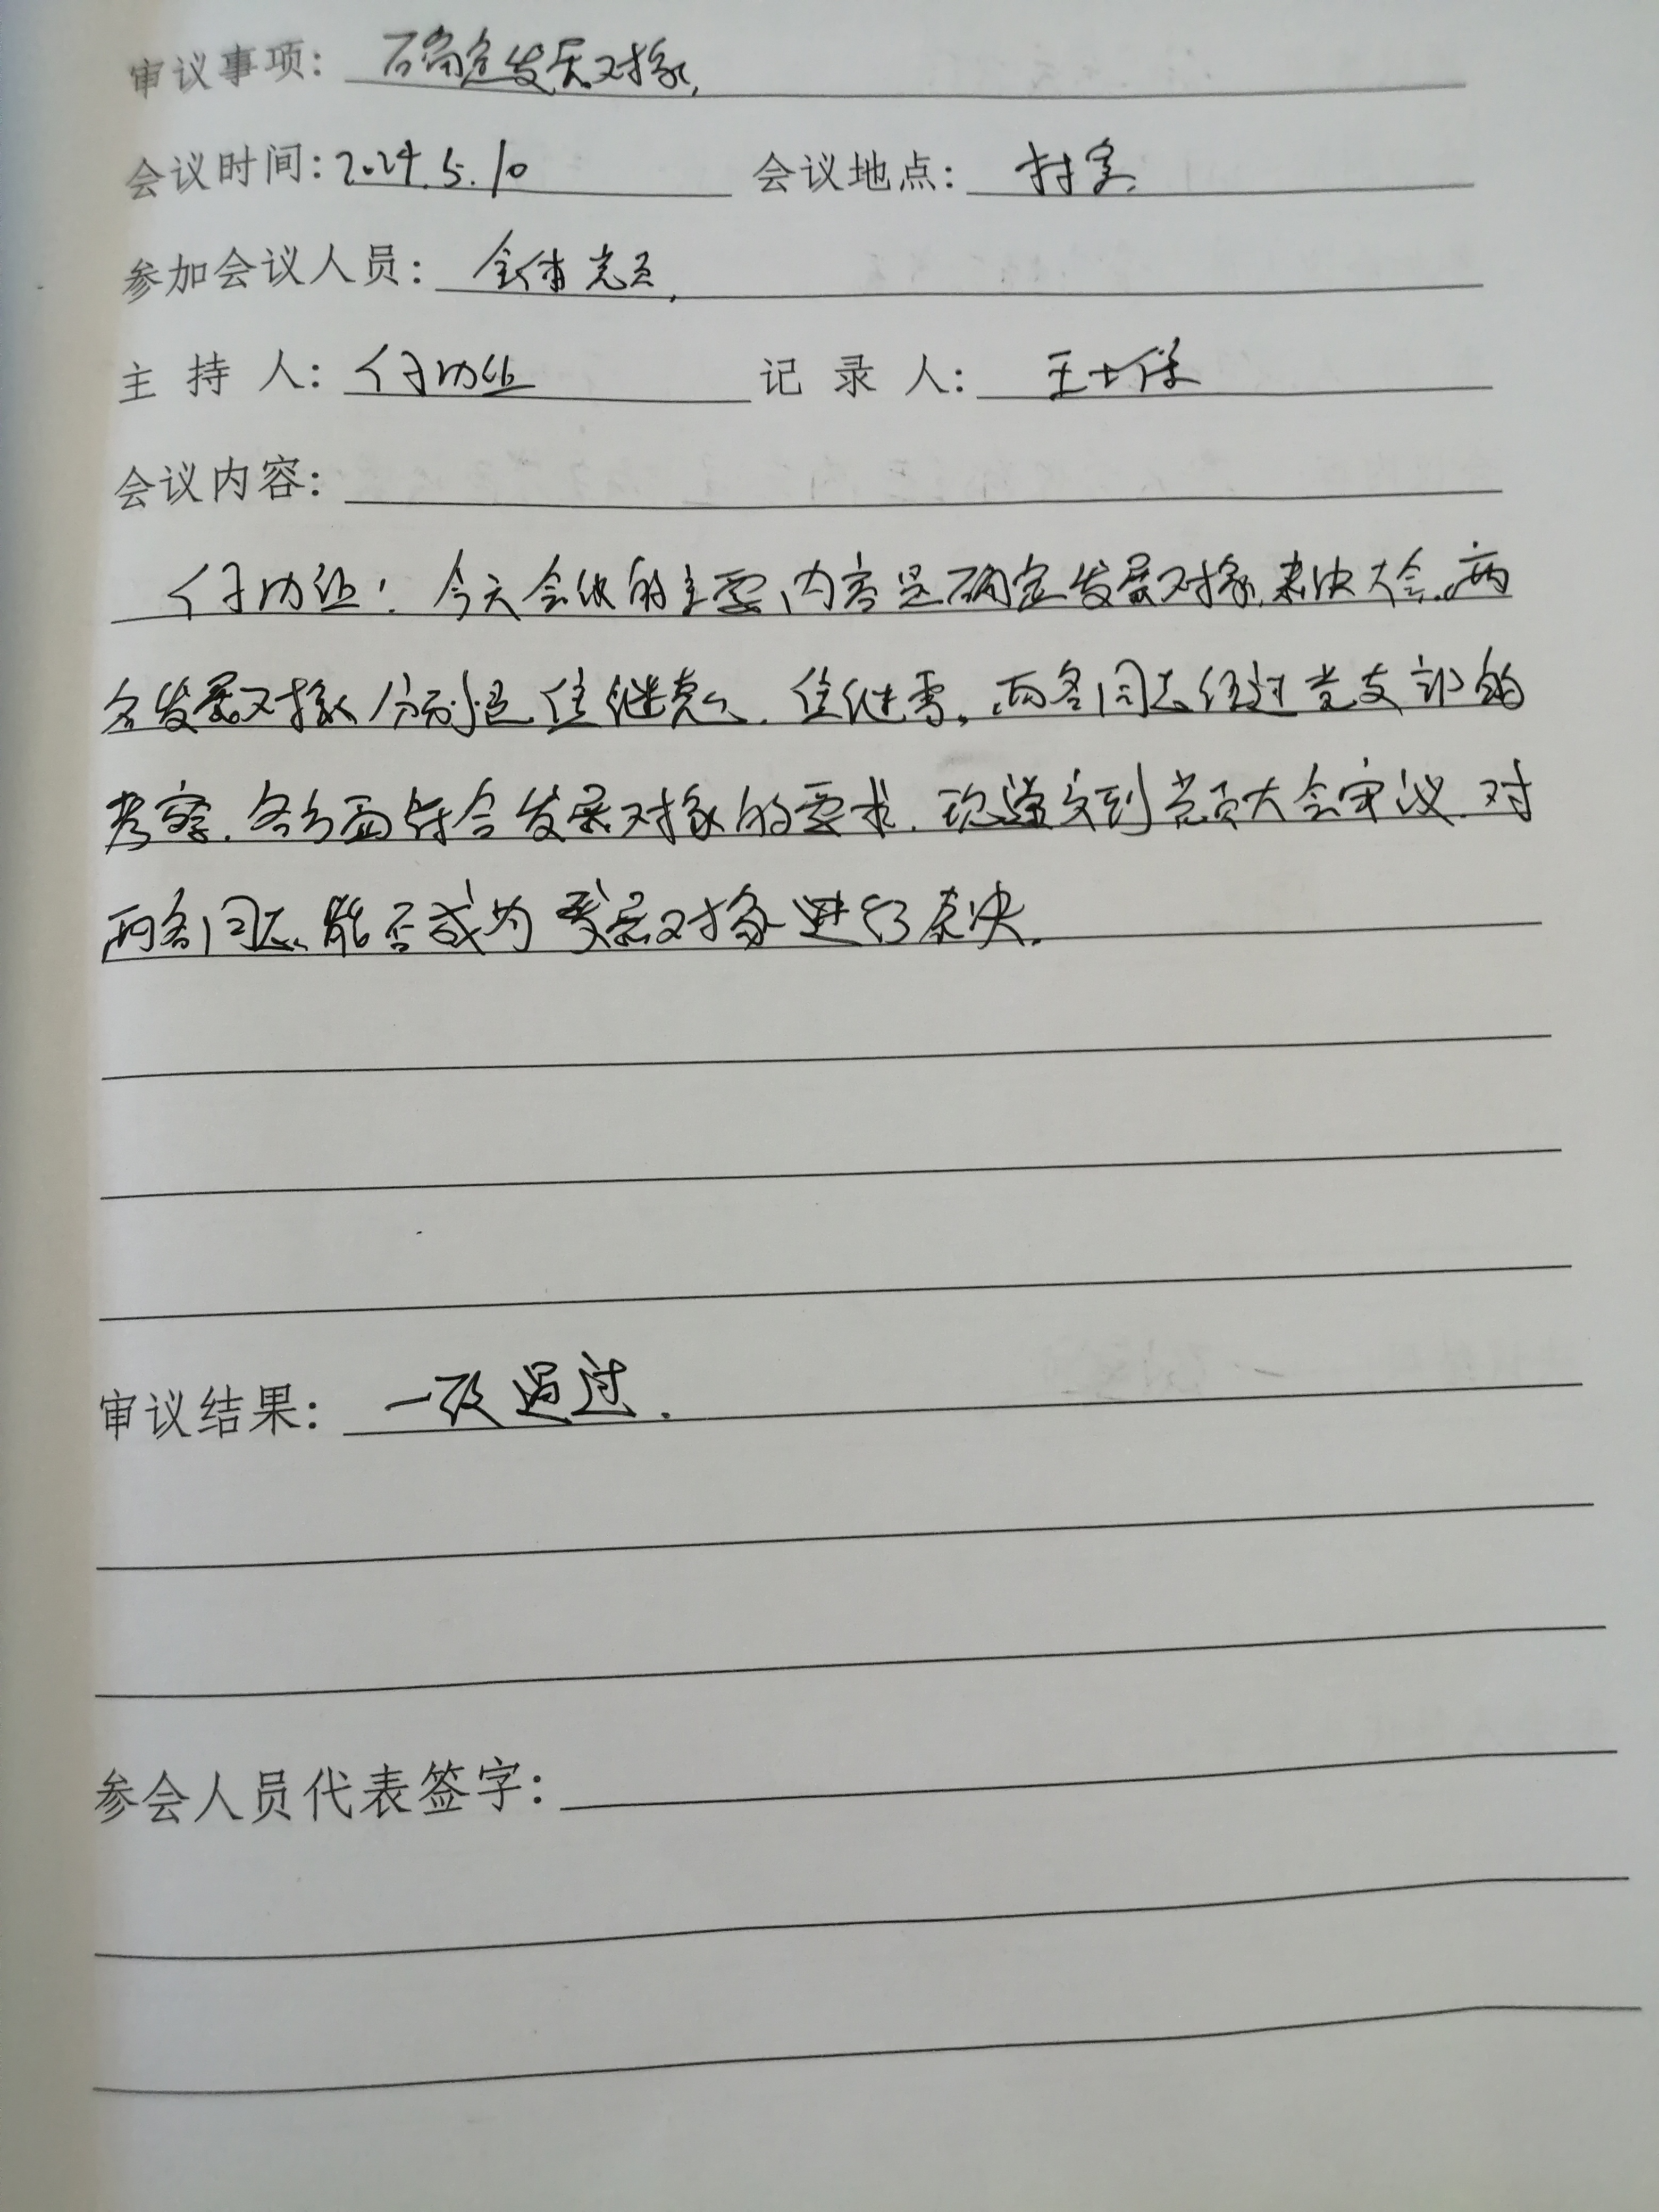 审议事项：确定发展对象.
会议时间：2024.5.10 会议地点：村室.
参加会议人员：全体党员.
主 持 人：付功 记 录 人：王士保
会议内容：
付功：今天会议的主要内容是确定发展对象表决大会.两
名发展对象分别是 继亮、继雪。两名同志经过党支部的
考察.各方面符合发展对象的要求.现提交到党员大会审议.对
两名同志能否成为发展对象进行表决.
审议结果：一致通过.
参会人员代表签字：